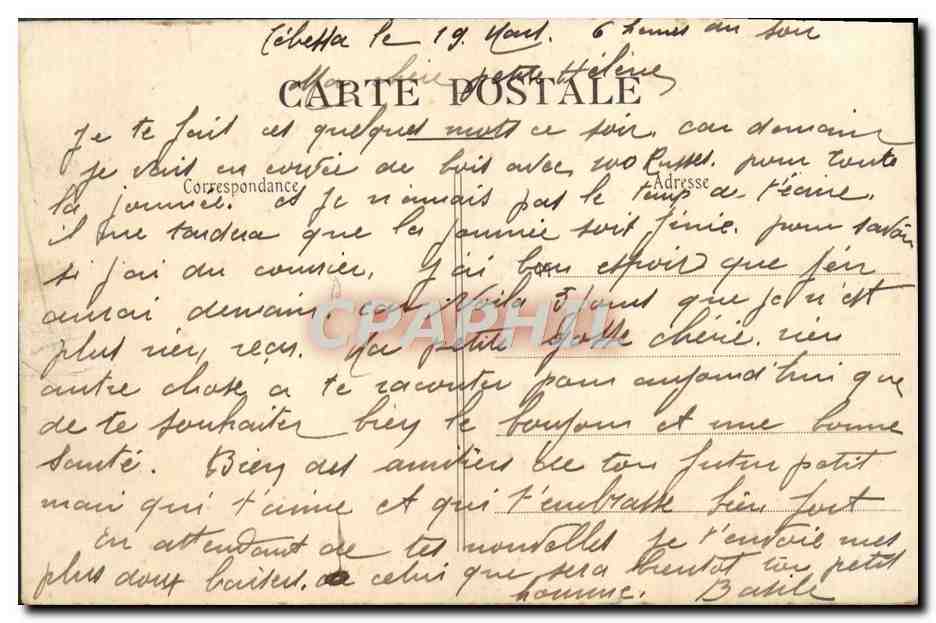 Tébessa le 19 Mars. 6 heures du soir
Ma chère petite Hélène,
CARTE POSTALE
Je te fait ces quelques mots ce soir. car demain
je vais en corvée de bois avec 200 Russes. pour toute
Correspondance
Adresse
la journée. et je n'aurais pas le temp de t'écrire.
il me tardera que la journée soit finie. pour savoir
si j'ai du courrier. j'ai bon espoir que j'en
aurai demain. car Voila 5 jours que je n'est
CPAPHIL
plus rien reçu. Ma petite gosse chérie. rien
autre chose a te raconter pour aujourd'hui que
de te souhaiter bien le bonjour et une bonne
santé. Bien des amitiés de ton futur petit
mari qui t'aime et qui t'embrasse bien fort
En attendant de tes nouvelles je t'envoie mes
plus doux baisers. de celui que sera bientot ton petit
homme. Basile